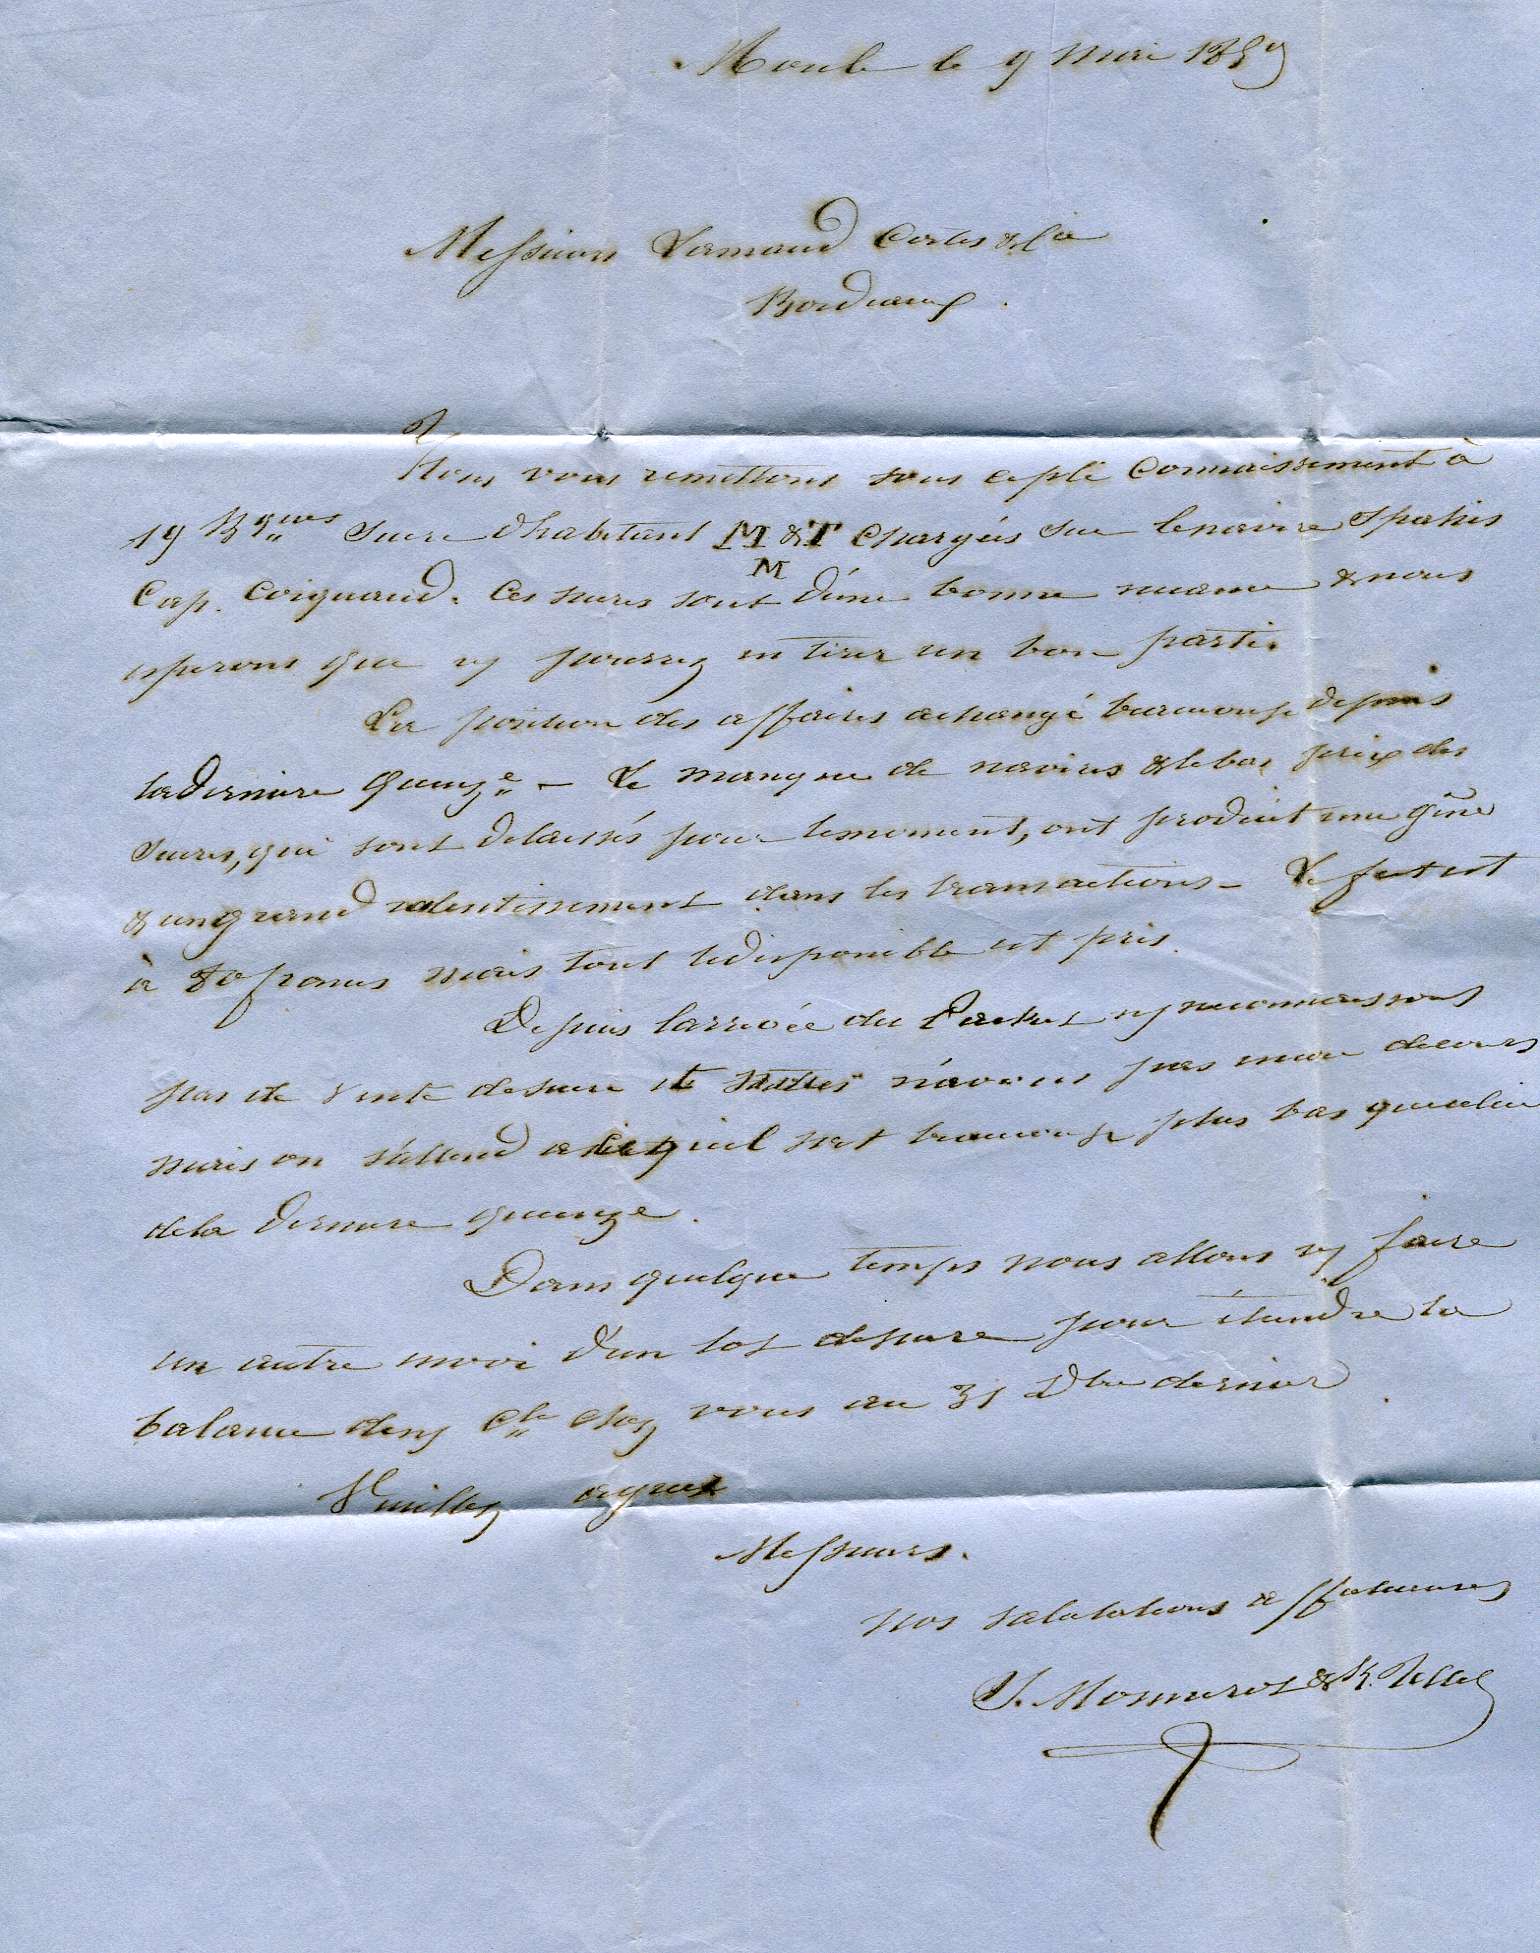 Moule le 9 Mai 1859
Messieurs Lamaud Cortes & Cie
Bordeaux.
Nous vous remettons sous ce pli Connaissement à
19 Bques Sucre d'habitant M & T Chargés sur le navire Spahis
M
Cap. Coignaud. Ces sucres sont d'une bonne nuance & nous
esperons que vs pourrez en tirer un bon parti.
La position des affaires a changé beaucoup depuis
la derniere Quinze. Le manque de navires & le bas prix des
Sucres, qui sont délaissés pour le moment, ont produit une gêne
& un grand ralentissement dans les transactions. Le fret est
à 80 francs mais tout le disponible est pris.
Depuis l'arrivée du Packet ns ne connaissons
pas de vente de sucre et n'avons pas encore de cours
mais on s'attend a ce qu'il soit beaucoup plus bas que celui
de la derniere quinze.
Dans quelque temps nous allons vs faire
un autre envoi d'un lot de sucre pour éteindre la
balance de ns Cte chez vous au 31 Dbre dernier
Veuillez agréer
Messieurs.
nos salutations affectueuses
J. Monnerot & K. Tellel